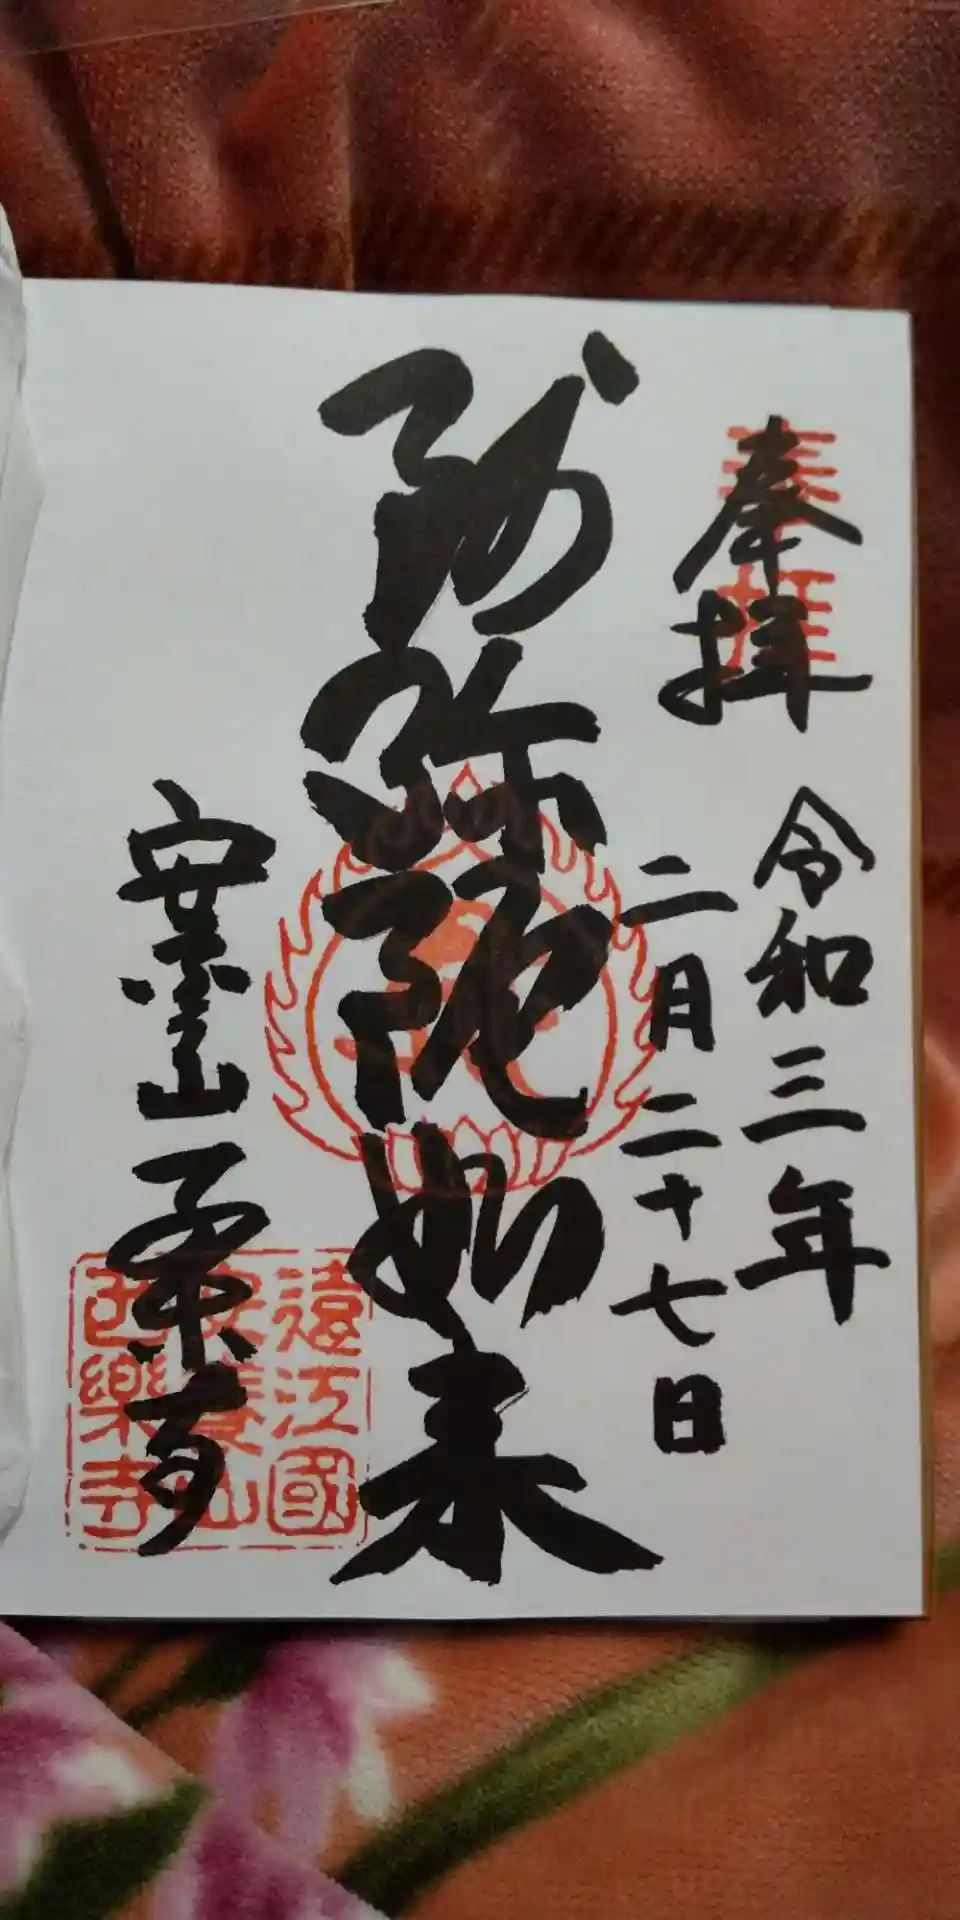 奉拝
奉拝
令和三年
二月二十七日
阿弥陀如来
安養山西楽寺
遠江國
安養山
西樂寺